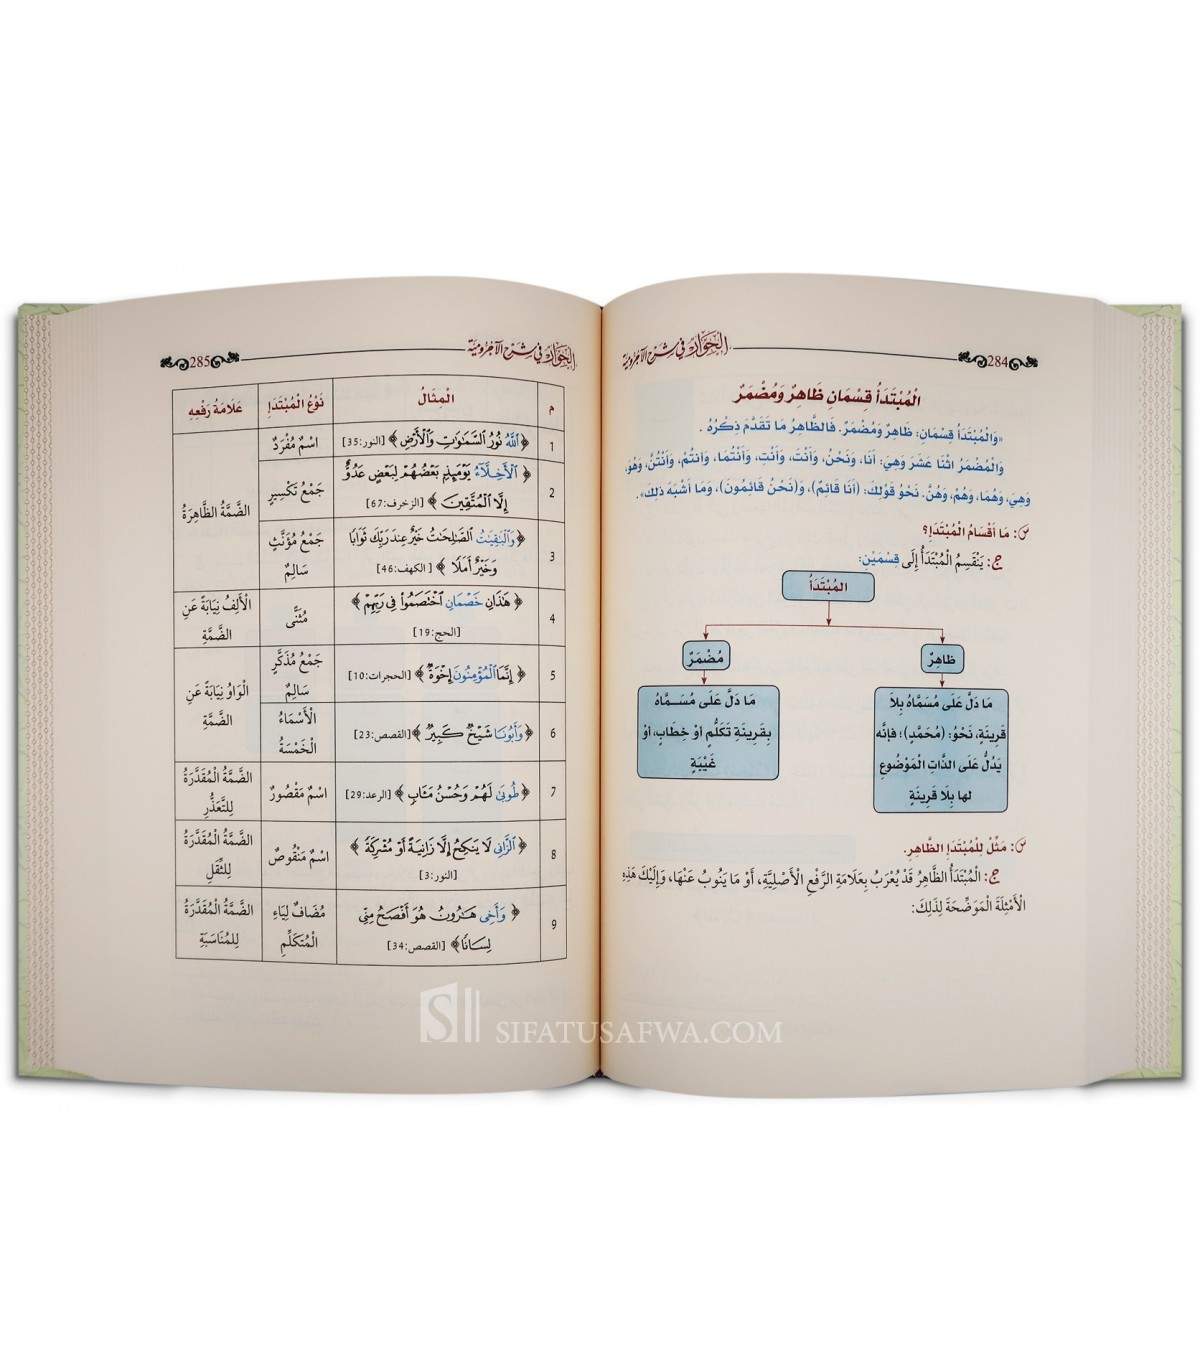 284
الحوار في شرح الآجرومية
الْمُبْتَدَأُ قِسْمَانِ ظَاهِرٌ وَمُضْمَرٌ
«وَالْمُبْتَدَأُ قِسْمَانِ: ظَاهِرٌ وَمُضْمَرٌ. فَالظَّاهِرُ مَا تَقَدَّمَ ذِكْرُهُ .
وَالْمُضْمَرُ اثْنَا عَشَرَ وَهِيَ: أَنَا، وَنَحْنُ، وَأَنْتَ، وَأَنْتِ، وَأَنْتُمَا، وَأَنْتُمْ، وَأَنْتُنَّ، وَهُوَ،
وَهِيَ، وَهُمَا، وَهُمْ، وَهُنَّ. نَحْوُ قَوْلِكَ: (أَنَا قَائِمٌ)، وَ(نَحْنُ قَائِمُونَ)، وَمَا أَشْبَهَ ذَلِكَ».
س: مَا أَقْسَامُ الْمُبْتَدَإِ؟
ج: يَنْقَسِمُ الْمُبْتَدَأُ إِلَى قِسْمَيْنِ:
الْمُبْتَدَأُ
ظَاهِرٌ
مُضْمَرٌ
مَا دَلَّ عَلَى مُسَمَّاهُ بِلَا
قَرِينَةٍ، نَحْوُ: (مُحَمَّدٍ)؛ فَإِنَّه
يَدُلُّ عَلَى الذَّاتِ الْمَوْضُوعِ
لها بِلَا قَرِينَةٍ
مَا دَلَّ عَلَى مُسَــمَّاهُ
بِقَرِينَةِ تَكَلُّمٍ أَوْ خِطَابٍ، أَوْ
غَيْبَةٍ
س: مَثِّلْ لِلْمُبْتَدَإِ الظَّاهِرِ.
ج: الْمُبْتَدَأُ الظَّاهِرُ قَدْ يُعْرَبُ بِعَلَامَةِ الرَّفْعِ الْأَصْلِيَّةِ، أَوْ مَا يَنُوبُ عَنْهَا، وَإِلَيْكَ هَذِهِ
الْأَمْثِلَةَ الْمَوَضِّحَةَ لِذَلِكَ:
الحوار في شرح الآجرومية
285
م الْمِثَالُ نَوْعُ الْمُبْتَدَإِ عَلَامَةُ رَفْعِهِ
1 ﴿ٱللَّهُ نُورُ ٱلسَّمَٰوَٰتِ وَٱلْأَرْضِ﴾ [النور:35] اسْمٌ مُفْرَدٌ
الضَّمَّةُ الظَّاهِرَةُ
2 ﴿ٱلْأَخِلَّآءُ يَوْمَئِذٍ بَعْضُهُمْ لِبَعْضٍ عَدُوٌّ
إِلَّا ٱلْمُتَّقِينَ﴾ [الزخرف:67] جَمْعُ تَكْسِيرٍ
3 ﴿وَٱلْبَٰقِيَٰتُ ٱلصَّٰلِحَٰتُ خَيْرٌ عِندَ رَبِّكَ ثَوَابًا
وَخَيْرٌ أَمَلًا﴾ [الكهف:46] جَمْعُ مُؤَنَّثٍ
سَالِمٌ
4 ﴿هَٰذَانِ خَصْمَانِ ٱخْتَصَمُوا۟ فِى رَبِّهِمْ﴾
[الحج:19] مُثَنًّى
الْأَلِفُ نِيَابَةً عَنِ
الضَّمَّةِ
5 ﴿إِنَّمَا ٱلْمُؤْمِنُونَ إِخْوَةٌ﴾ [الحجرات:10] جَمْعُ مُذَكَّرٍ
سَالِمٌ
الْوَاوُ نِيَابَةً عَنِ
الضَّمَّةِ
6 ﴿وَأَبُونَا شَيْخٌ كَبِيرٌ﴾ [القصص:23] الْأَسْمَاءُ
الْخَمْسَةُ
7 ﴿طُوبَىٰ لَهُمْ وَحُسْنُ مَـَٔابٍ﴾ [الرعد:29] اسْمٌ مَقْصُورٌ
الضَّمَّةُ الْمُقَدَّرَةُ
لِلتَّعَذُّرِ
8 ﴿ٱلزَّانِى لَا يَنكِحُ إِلَّا زَانِيَةً أَوْ مُشْرِكَةً﴾
[النور:3] اسْمٌ مَنْقُوصٌ
الضَّمَّةُ الْمُقَدَّرَةُ
لِلثِّقَلِ
9 ﴿وَأَخِى هَٰرُونُ هُوَ أَفْصَحُ مِنِّى
لِسَانًا﴾ [القصص:34] مُضَافٌ لِيَاءِ
الْمُتَكَلِّمِ
الضَّمَّةُ الْمُقَدَّرَةُ
لِلْمُنَاسَبَةِ
SIFATUSAFWA.COM